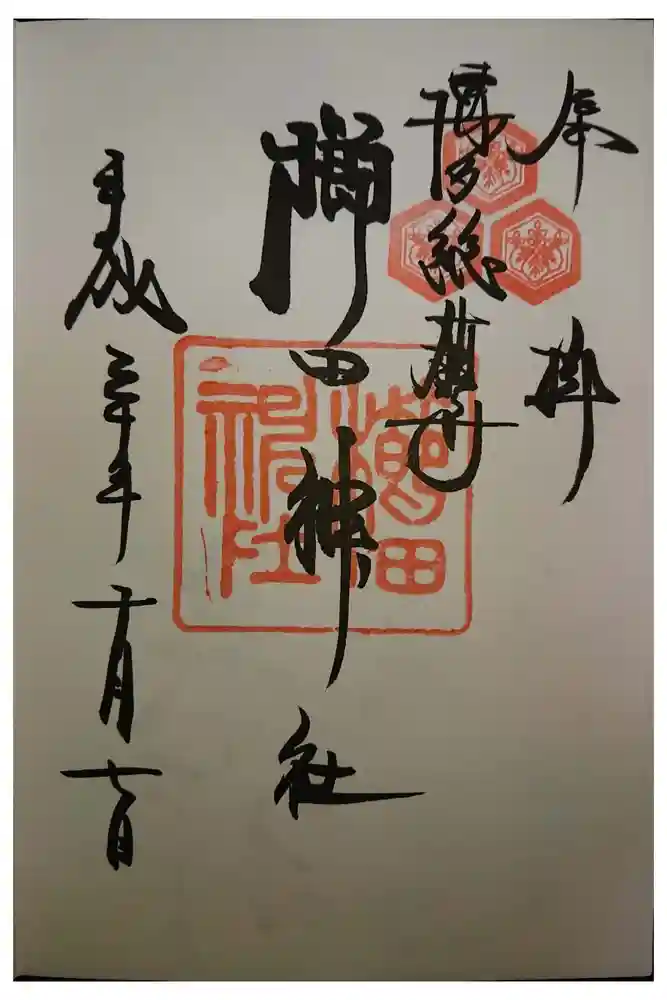 奉拝
博多総鎮守
櫛田神社
平成三十年十月七日
櫛田
神社